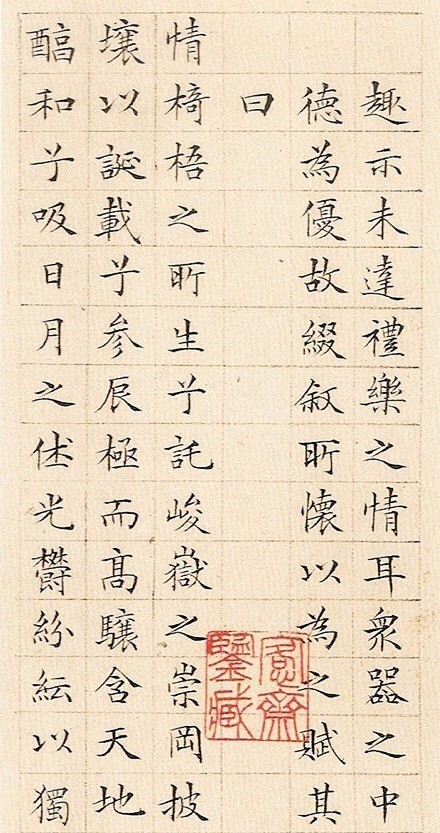 趣示未達禮樂之情耳衆器之中
德為優故綴叙所懷以為之賦其
曰
情椅梧之所生兮託峻嶽之崇岡披
壤以誕載兮參辰極而高驤含天地
醕和兮吸日月之休光鬱紛紜以獨
齋鑒藏